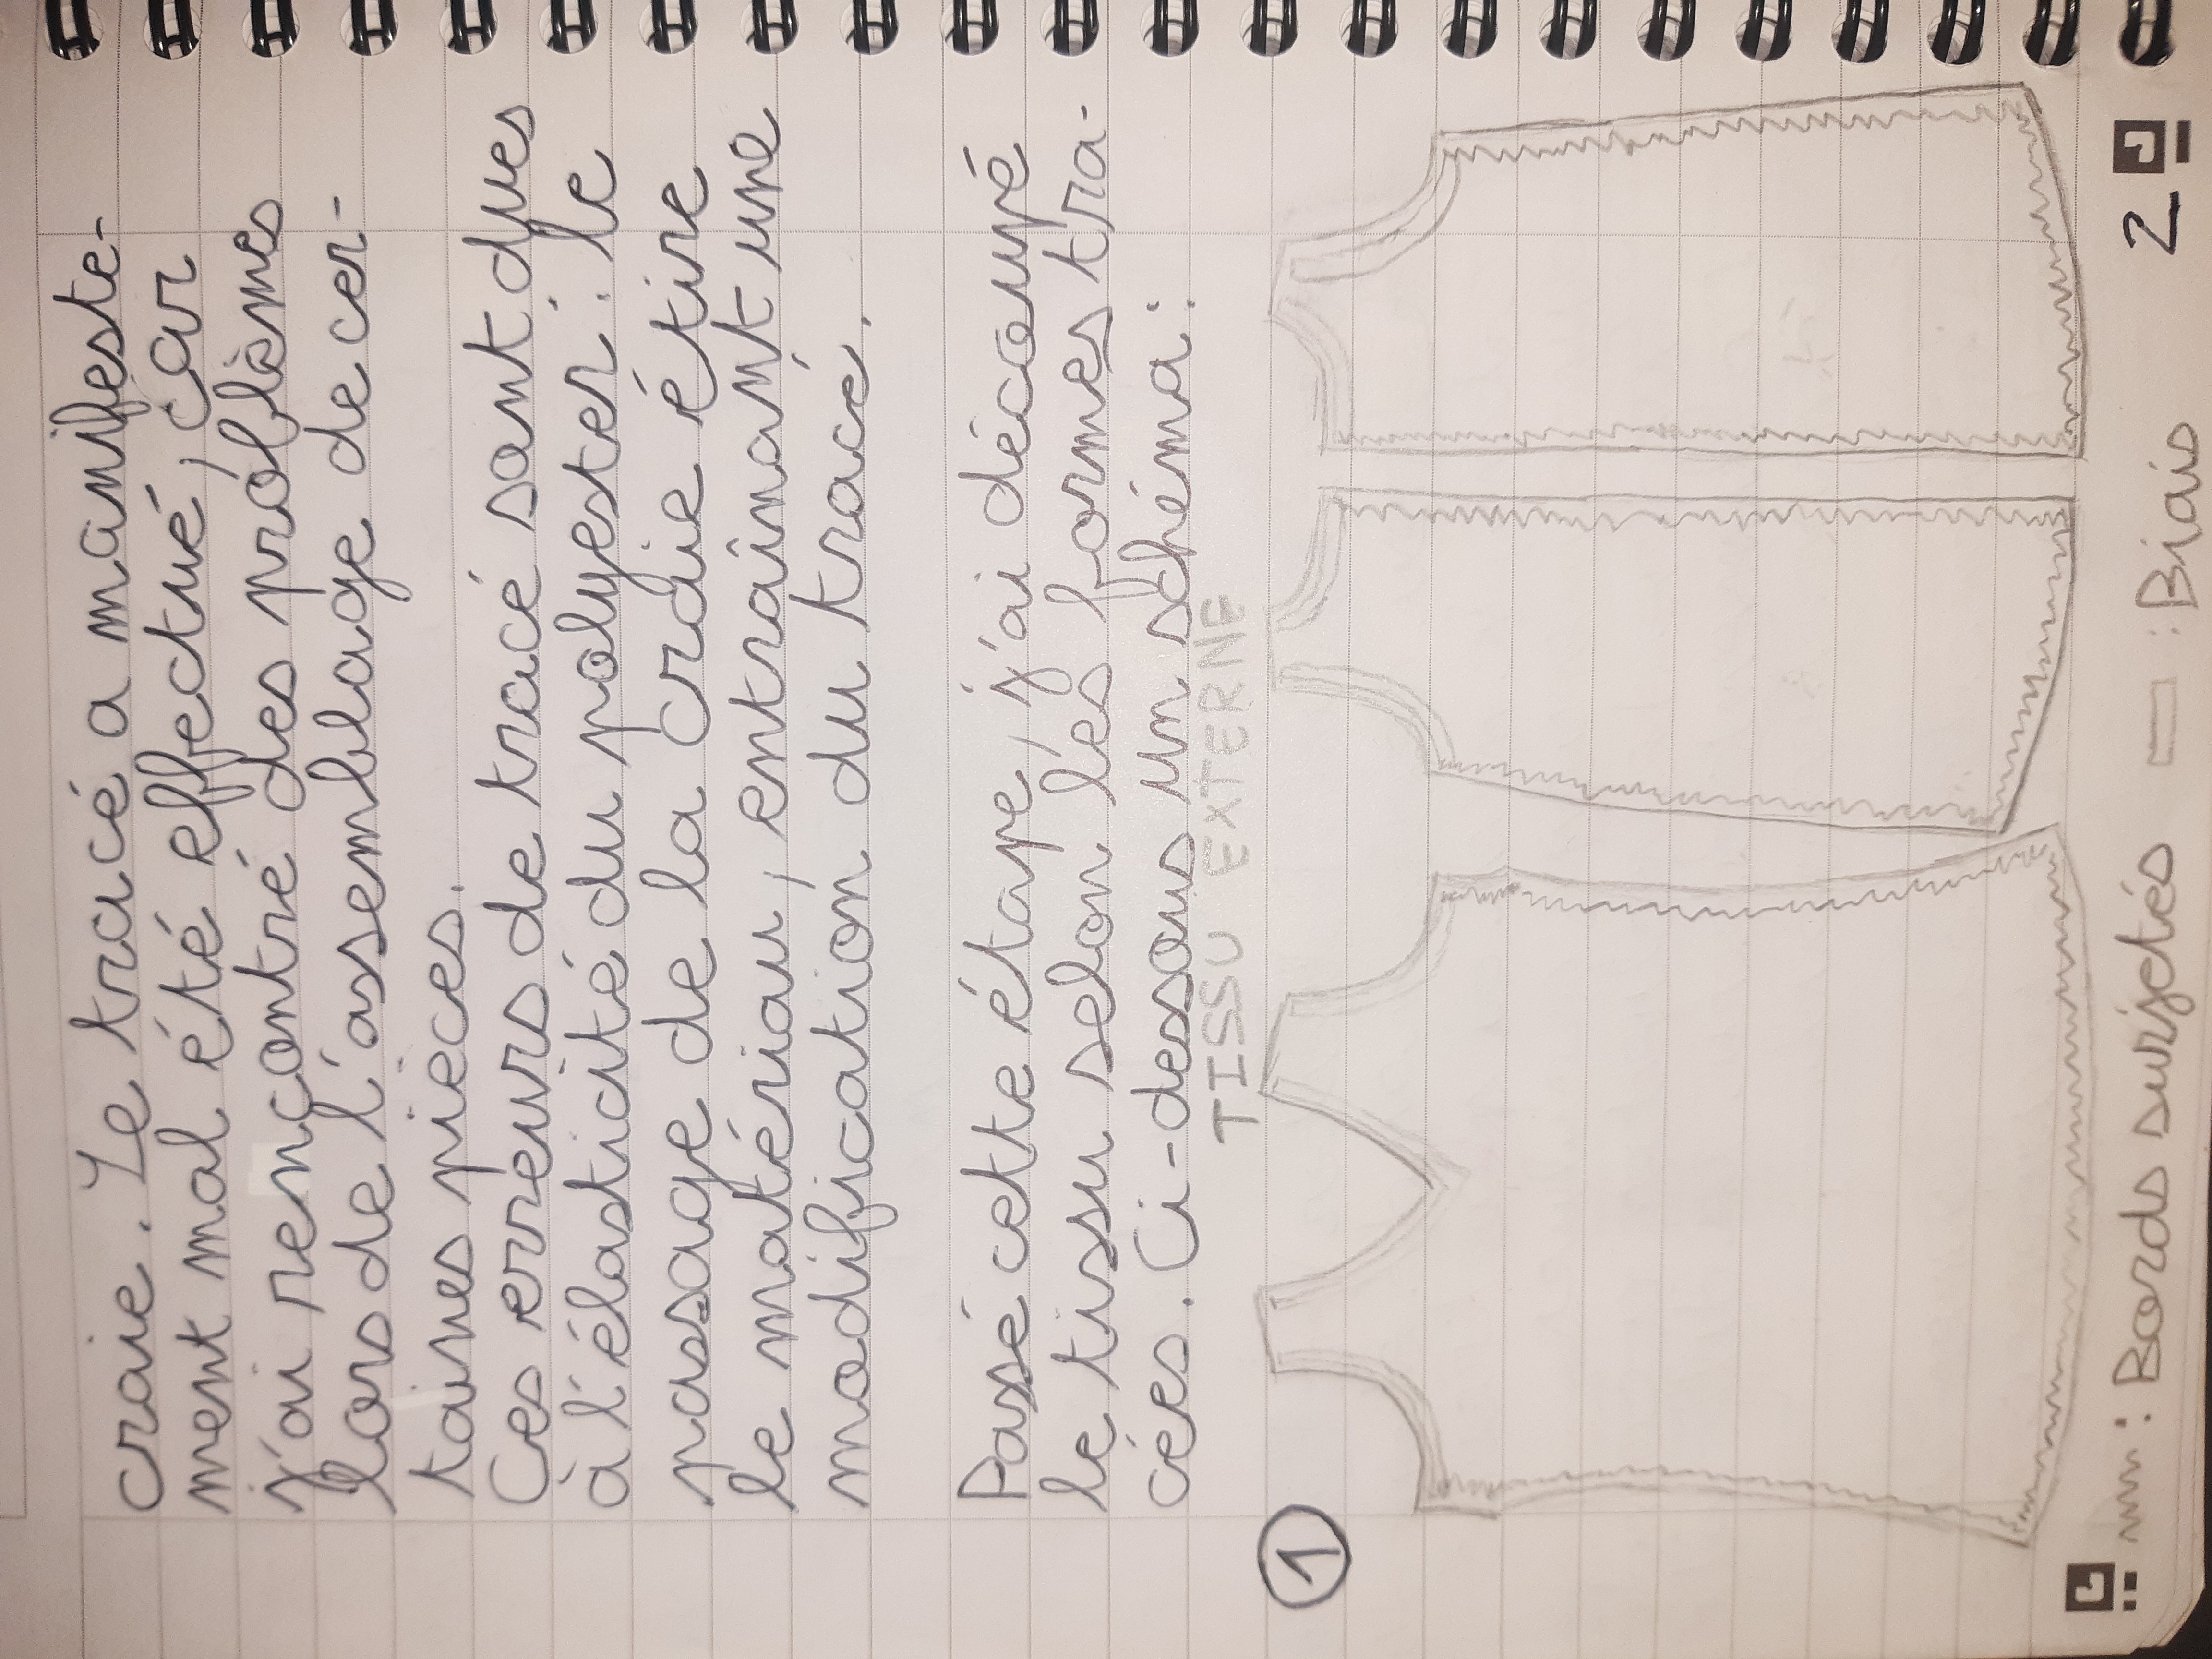 craie. Le tracé a manifeste-
ment mal été effectué, car
j'ai rencontré des problèmes
lors de l'assemblage de cer-
taines pièces.
Ces erreurs de tracé sont dues
à l'élasticité du polyester : le
passage de la craie étire
le matériau, entraînant une
modification du tracé.
Passé cette étape, j'ai découpé
le tissu selon les formes tra-
cées. Ci-dessous un schéma :
TISSU EXTERNE
1
: Bords surjetés : Biais
2